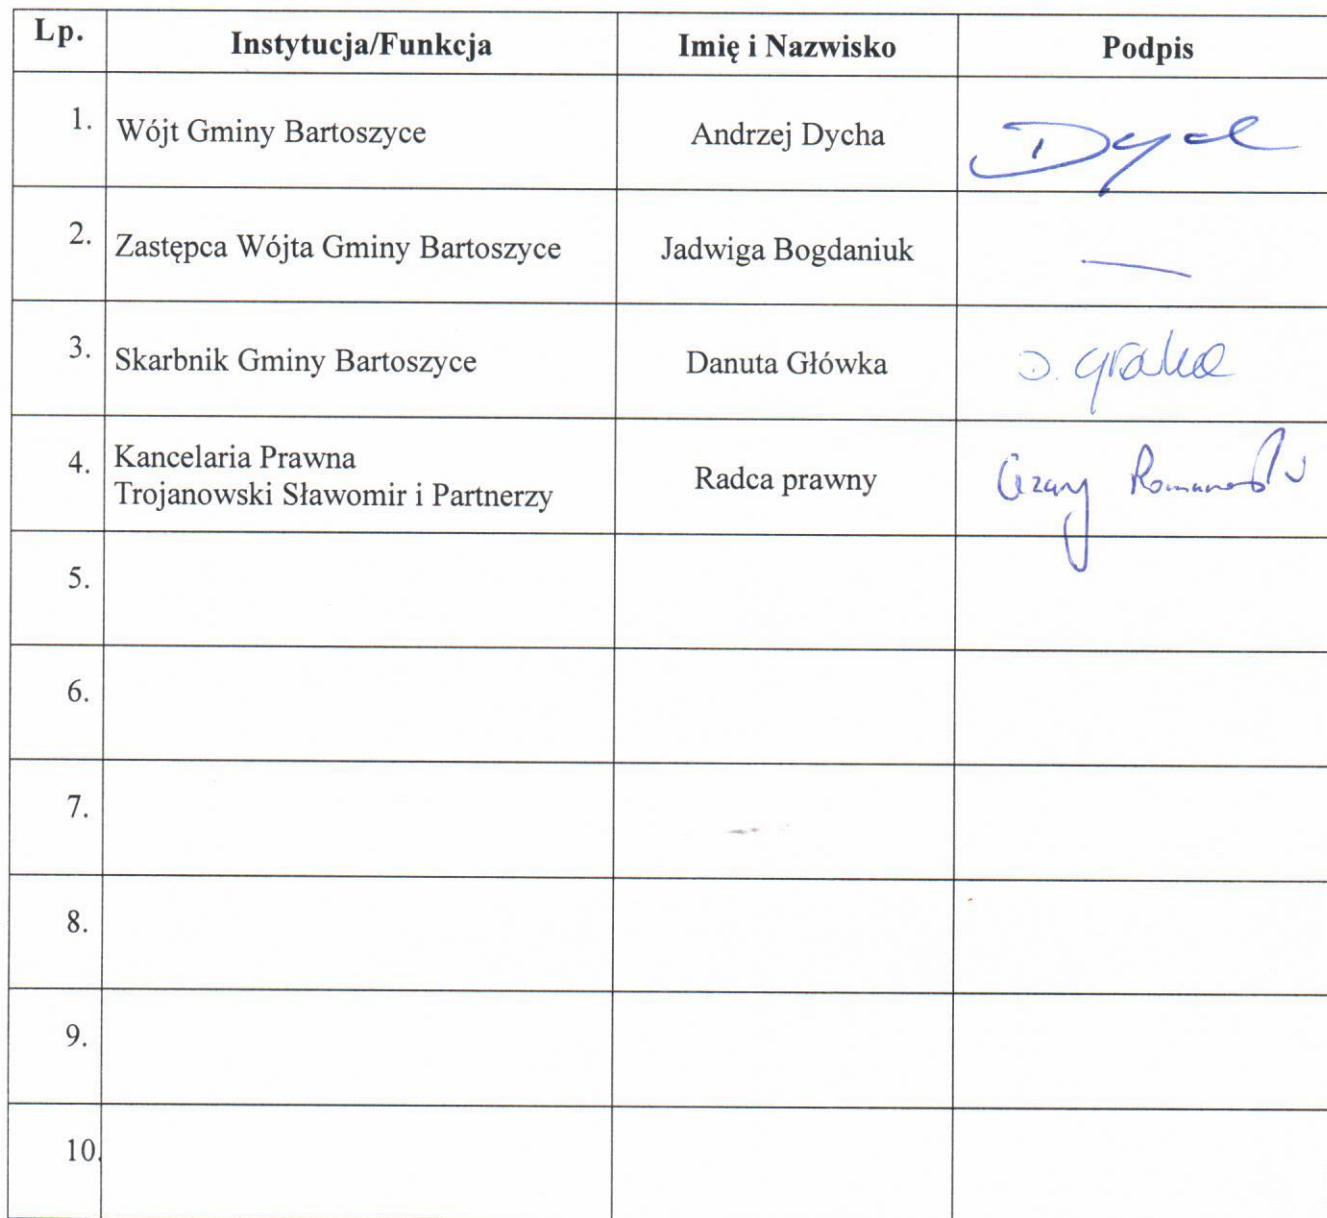 Lp. Instytucja/Funkcja Imię i Nazwisko Podpis
1. Wójt Gminy Bartoszyce Andrzej Dycha
2. Zastępca Wójta Gminy Bartoszyce Jadwiga Bogdaniuk —
3. Skarbnik Gminy Bartoszyce Danuta Główka D.
4. Kancelaria Prawna
Trojanowski Sławomir i Partnerzy Radca prawny Cezary
5.
6.
7.
8.
9.
10.